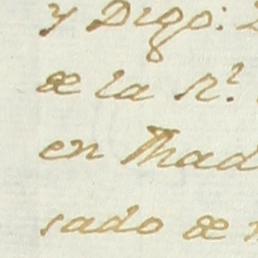 y Digo:
de la Rl.
en Mad
sado de